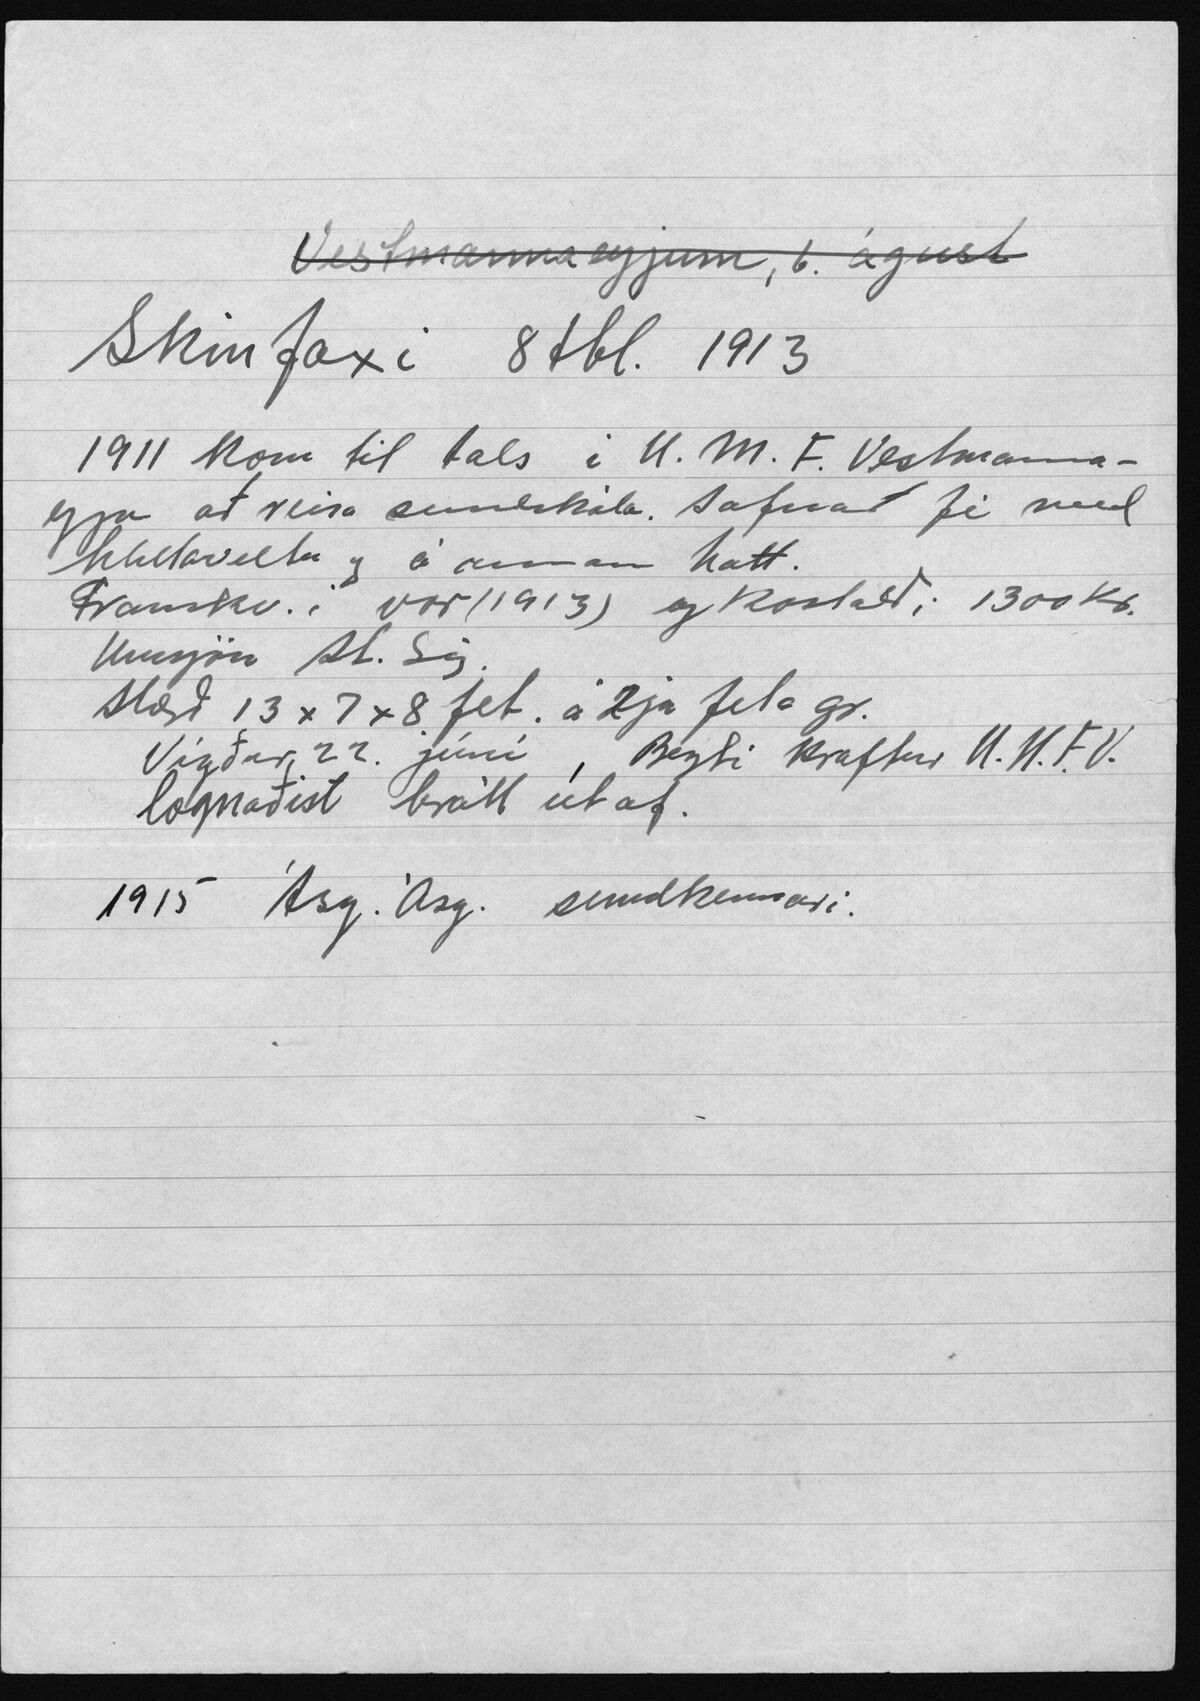 Vestmannaeyjum, 6. ágúst
Skinfaxi 8 tbl. 1913
1911 kom til tals í U. M. F. Vestmanna-
eyja að reisa sundskála. Safnað fé með
hlutaveltu og á annan hátt.
Framkv. í vor (1913) og kostaði 1300 kr.
Umsjón St. Sig.
Stærð 13 x 7 x 8 fet. á 2ja feta gr.
Vígður 22. júní, kraftur U.M.F.V.
lognaðist brátt út af.
1915 Ásg. Ásg. sundkennari.